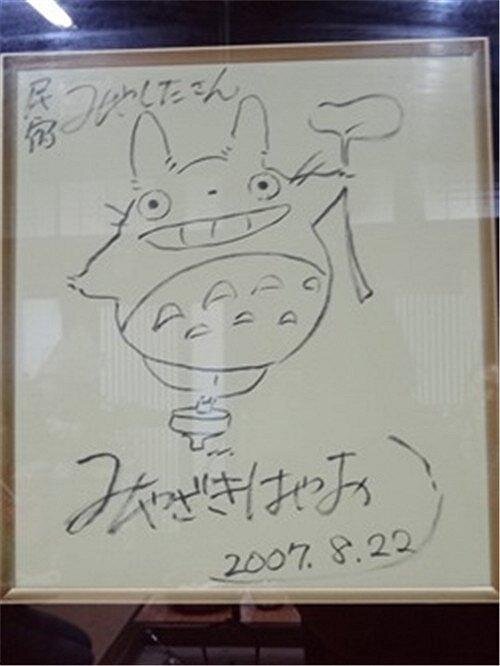 民宿 みやしたさん
みやざきはやお
2007. 8. 22